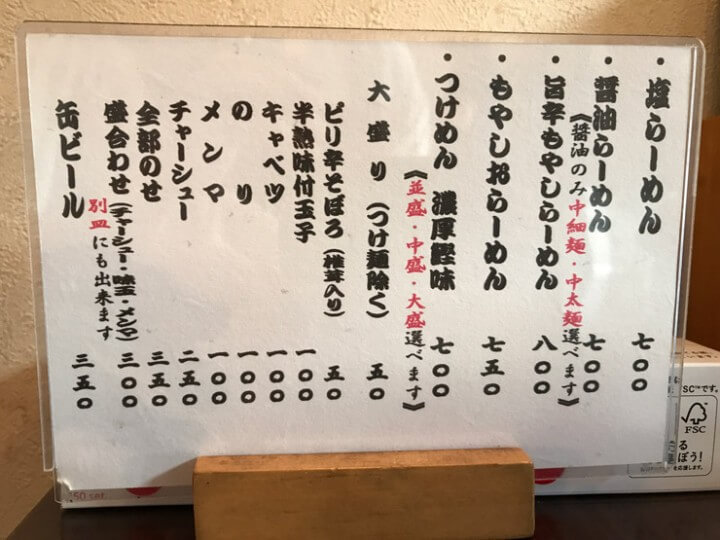 ・塩らーめん 七〇〇
・醤油らーめん 七〇〇
《醤油のみ中細麺・中太麺選べます》
・旨辛もやしらーめん 八〇〇
・もやしおらーめん 七五〇
・つけめん 濃厚鰹味 七〇〇
《並盛・中盛・大盛選べます》
大盛り(つけ麺除く) 五〇
ピリ辛そぼろ(椎茸入り) 五〇
半熟味付玉子 一〇〇
キャベツ 一〇〇
のり 一〇〇
メンマ 一〇〇
チャーシュー 二五〇
全部のせ 三五〇
盛合わせ(チャーシュー・味玉・メンマ) 三〇〇
別皿にも出来ます
缶ビール 三五〇
FSC™です。
FSC
ぼう!
を応援します。